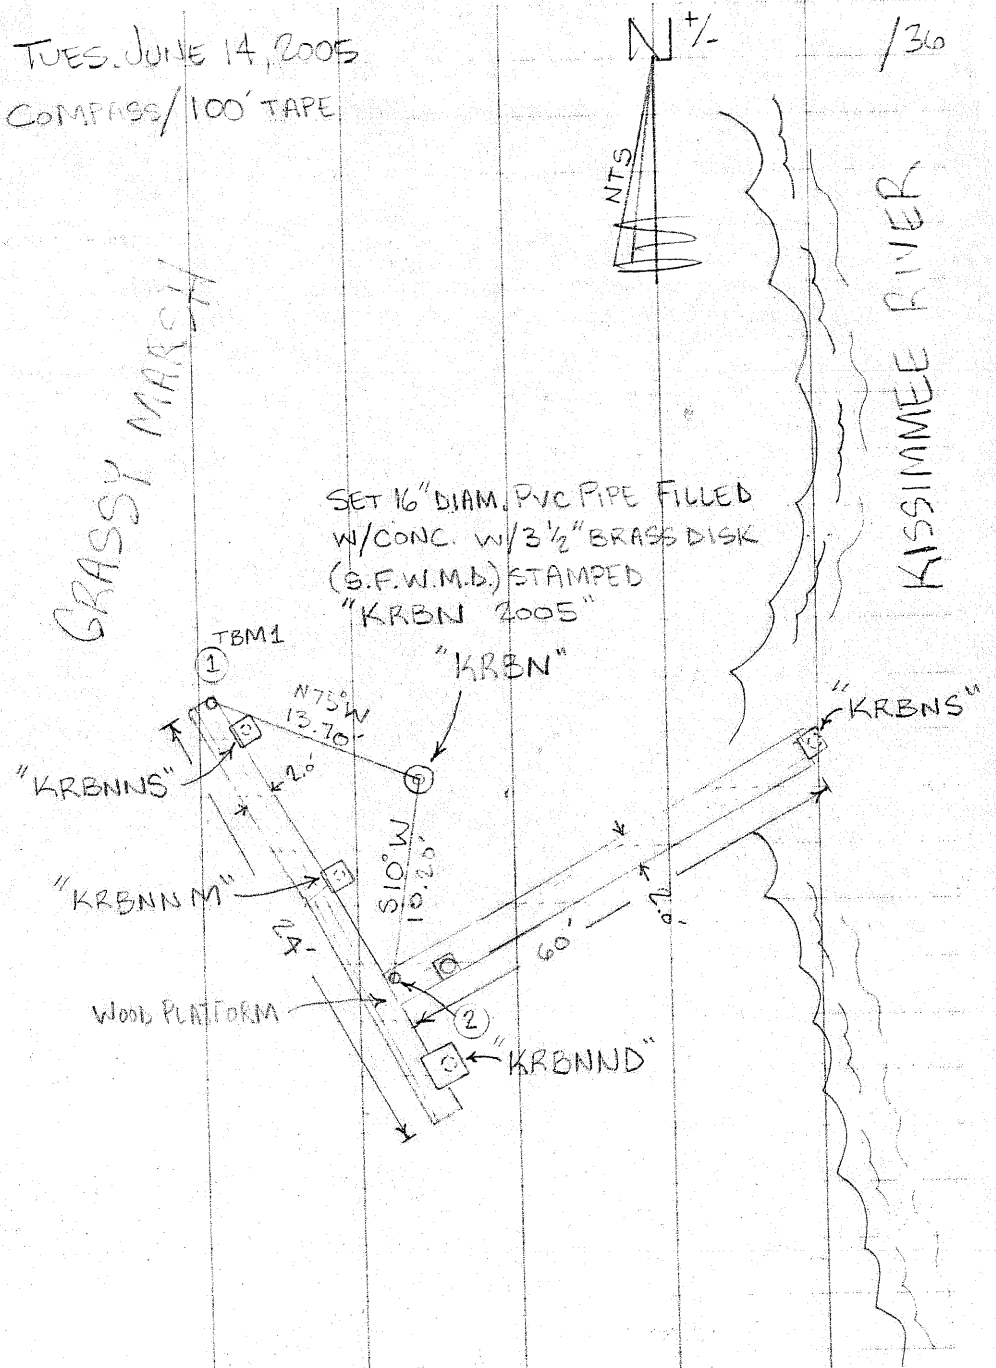 TUES. JUNE 14, 2005
COMPASS/100' TAPE
N +/-
/36
NTS
KISSIMMEE RIVER
GRASSY MARSH
SET 16" DIAM. PVC PIPE FILLED
W/CONC. W/3 1/2" BRASS DISK
(S.F.W.M.D.) STAMPED
"KRBN 2005"
TBM1
1
"KRBN"
N75°W
13.70'
"KRBNS"
"KRBNNS"
2.0'
"KRBNNM"
S10°W
10.20'
24'
60'
2.0'
WOOD PLATFORM
2
"KRBNND"